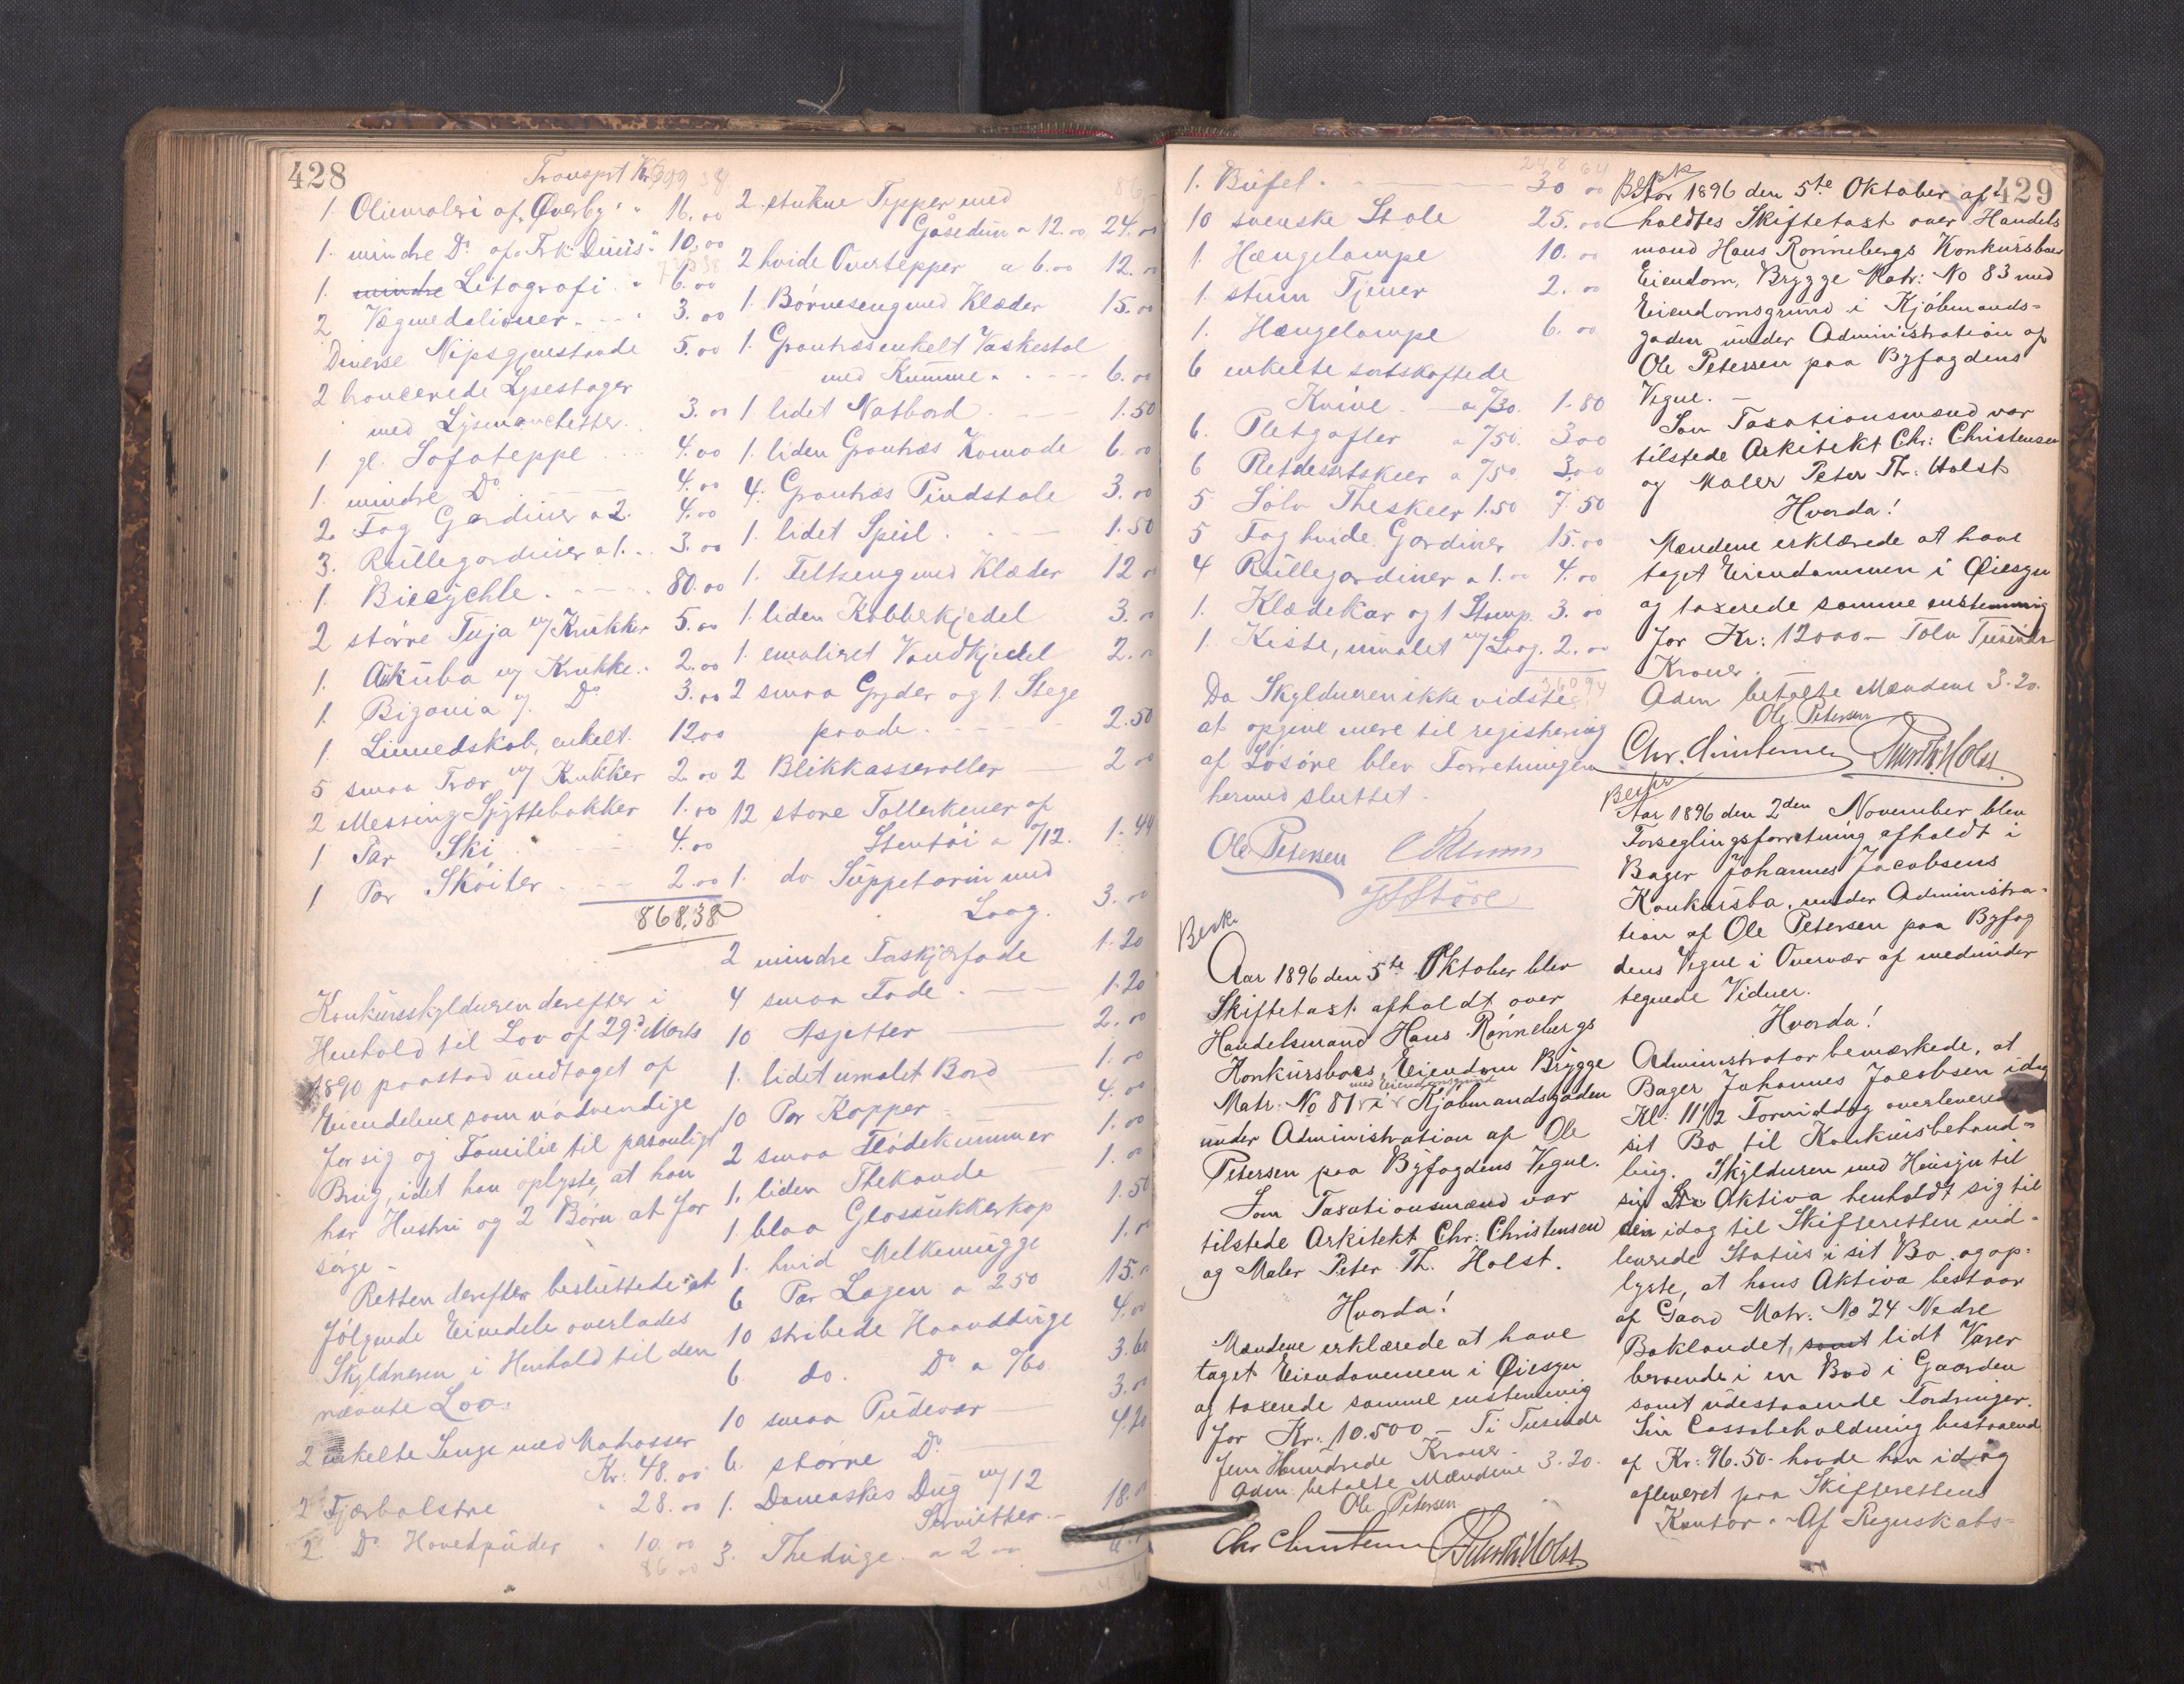 428
Transprt Kr 699 38
1. Oliemaleri af „Øverby" " 16.00
1. mindre Do af „Frk: Duus" 10.00
1. mindre Litografi " 6.00
2 Vægmedalioner 3.00
Diverse Nipsgjenstande 5.00
2 broncerede Lysestager
med Lysmanchetter 3.00
1 gl. Sofateppe 4.00
1. mindre Do 4.00
2 Fag Gardiner a 2. 4.00
3. Rullegardiner a 1. 3.00
1. Biecychle 80.00
2 større Tuja m/ Krukker 5.00
1. Akuba m/ Krukke. 2.00
1 Bigonia m/ Do 3.00
1. Linnedskab, enkelt. 12.00
5 smaa Trær m/ Krukker 2.00
2 Messing Spyttebakker 1.00
1 Par Ski 4.00
1 Par Skøiter 2.00
868,38
Konkursskylderen derefter i
Henhold til Lov af 29d Marts
1890 paastod undtaget af
Eiendelene som nødvendige
for sig og Familie til personligt
Brug, idet han oplyste, at han
har Hustru og 2 Børn at for
sørge -
Retten derefter besluttede at
følgende Eiendele overlades
Skyldneren i Henhold til den
nævnte Lov.
2 enkelte Senge med Matrasser
Kr: 48.00
2 Fjærbolstre " 28.00
2 Do Hovedpuder " 10.00
86 00
86,-
2 stukne Tepper med
Gåsedun a 12.00 24.00
2 hvide Overtepper a 6.00 12.00
1. Børneseng med Klæder 15.00
1. Grantræs enkelt Vaskestol
med Kumme 6.00
1. lidet Natbord 1.50
1. liden Grantræs Komode 6.00
4. Grantræs Pindstole 3.00
1. lidet Speil 1.50
1. Feltseng med Klæder 12
1. liden Kobberkjedel 3.
1. emaliret Vandkjedel 2.
2 smaa Gryder og 1. Stege
pande 2.50
2 Blikkasseroller 2 00
12 store Tallerkener af
Stentøi a /12. 1.44
1. do Suppeterin med
Laag. 3.00
2 mindre Taskjærfade 1.20
4 smaa Fade 1.20
10 Asjetter 2.00
1. lidet umalet Bord 1.00
10 Par Kopper 4.00
2 smaa Flødekummer 1.00
1. liden Thekande 1.
1. blaa Glassukkerkop 1.50
1. hvid Melkemugge 1.
6 Par Lagen a 2 50 15.
10 stribede Haandduge 4.00
6 do. Do a /60. 3.60
10 smaa Pudevar 3.00
6. større Do 4.20
1. Damaskes Dug m/ 12
Servietter 18.
3. Theduge a 2 00
248 64
1. Bufet. 30 00
10 svenske Stole 25.00
1. Hængelampe 10.00
1. stum Tjener 2.00
1. Hængelampe 6.00
6 enkelte sortskaftede
Knive a /30. 1.80
6. Pletgafler a /50 3.00
6 Pletdesertskeer a /50 3.00
5 Sølv Theskeer 1.50 7.50
5 Fag hvide Gardiner 15.00
4 Rullegardiner a 1.00 4.00
1. Klædekar og 1 Stamp. 3.00
1. Kiste, umalet m/ Laag. 2.00
360 94
Da Skyldneren ikke vidste
at opgive mere til registrering
af Løsøre blev Forretningen
hermed sluttet.
Ole Petersen
Besk
Aar 1896 den 5te Oktober blev
Skiftetaxt afholdt over
Handelsmand Hans Rønnebergs
Konkursboes Eiendom Brygge
med Eiendomsgrund
Matr. No 81 i Kjøbmandsgaden
under Administration af Ole
Petersen paa Byfogdens Vegne.
Som Taxationsmænd var
tilstede Arkitekt Chr: Christensen
og Maler Peter Th. Holst.
Hvorda!
Mændene erklærede at have
taget Eiendommen i Øiesyn
og taxerede samme enstemmig
for Kr: 10.500 - Ti Tusinde
fem Hundrede Kroner -
Adm. betalte Mændene 3.20.
Ole Petersen
Chr Christensen Peter Th. Holst
429
Besk
Aar 1896 den 5te Oktober af-
holdtes Skiftetaxt over Handels
mand Hans Rønnebergs Konkursboes
Eiendom, Brygge Matr: No 83 med
Eiendomsgrund i Kjøbmands=
gaden under Administration af
Ole Petersen paa Byfogdens
Vegne. -
Som Taxationsmænd var
tilstede Arkitekt Chr: Christensen
og Maler Peter Th. Holst
Hvorda!
Mændene erklærede at have
taget Eiendommen i Øiesyn
og taxerede samme enstemmig
for Kr: 12000 - Tolv Tusinde
Kroner. -
Adm betalte Mændene 3.20.
Ole Petersen
Chr. Christensen Peter Th. Holst
Aar 1896 den 2den November blev
Forseglingsforretning afholdt i
Bager Johannes Jacobsens
Konkursbo, under Administra-
tion af Ole Petersen paa Byfog
dens Vegne i Overvær af medunder
tegnede Vidner.
Hvorda!
Administrator bemærkede, at
Bager Johannes Jacobsen idag
Kl: 11 1/2 Formiddag overleverede
sit Bo til Konkursbehand=
ling. Skylderen med Hensyn til
sin Aktiva henholdt sig til
den idag til Skifteretten ind-
leverede Status i sit Bo, og op-
lyste, at hans Aktiva bestaar
af Gaard Matr: No 24 Nedre
Baklandet, samt lidt Varer
beroende i en Bod i Gaarden
samt udestaaende Fordringer.
Sin Cassabeholdning bestaaende
af Kr: 96.50 - havde han idag
afleveret paa Skifterettens
Kontor. - Af Regnskabs=